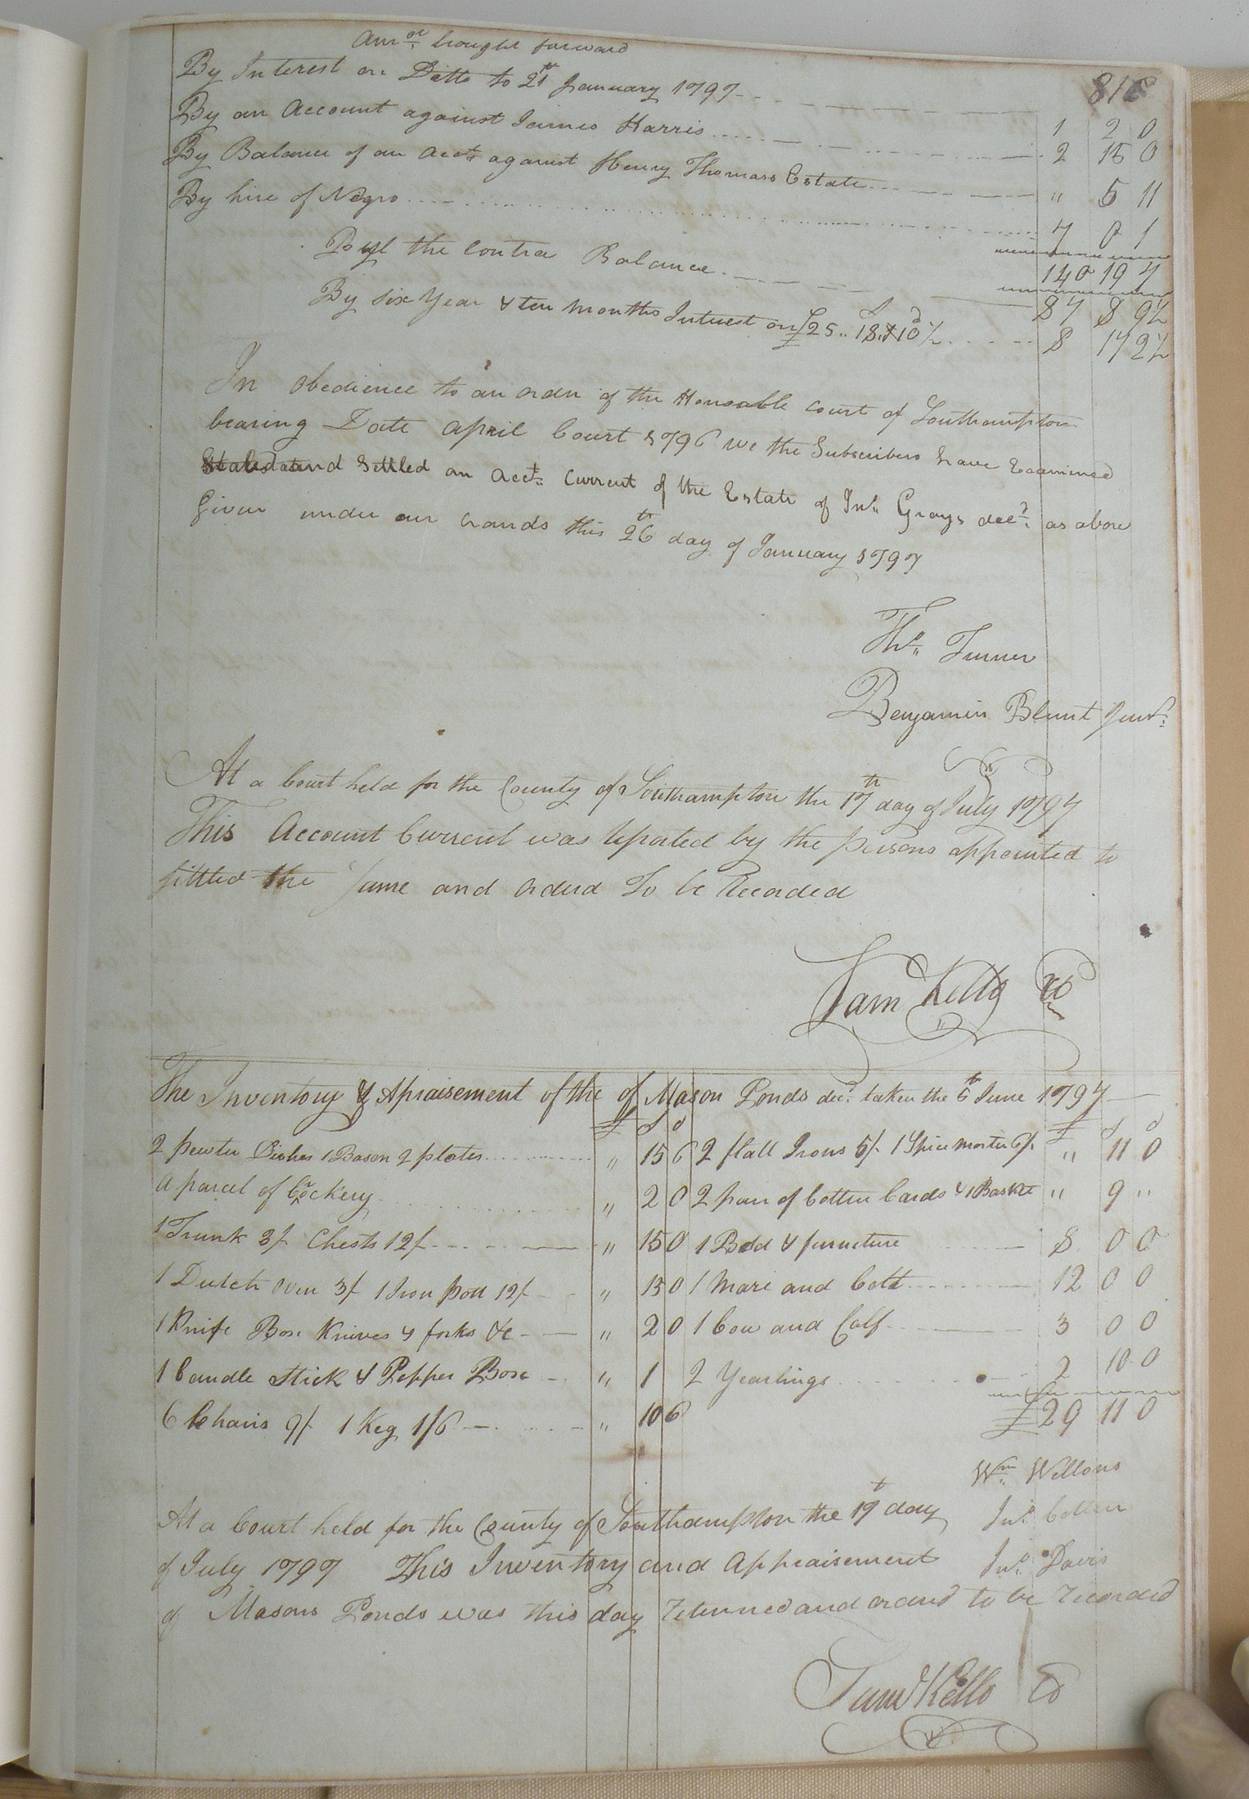 Am.ot brought forward
816
By Interest on Ditto to 21st January 1797 1 2 0
By an Account against James Harris 2 15 0
By Balance of an Acct. against Henry Thomass Estate " 5 11
By hire of Negro 7 0 1
140 19 7
By the Contra Balance 87 8 9½
By six Year & ten months Interest on £25..18..10½ 8 17 2½
In obedience to an order of the Honoable court of Southampton
bearing Date April Court 1796 we the Subscribers have Examined
Stated and Settled an acct. Current of the Estate of Jno. Grays decd. as above
Given under our hands this 26th day of January 1797
Thos. Turner
Benjamin Blunt Junr.
At a Court held for the County of Southampton the 17th day of July 1797
This Account Current was reported by the persons appointed to
settled the same and orderd to be Recorded
Sam Kello CC
The Inventory & Apraisement of the of Mason Ponds decd. taken the 6th June 1797
£ s d £ s d
2 pewter Dishes 1 Bason 2 plates " 15 6 2 flatt Irons 5/. 1 Spice morter 6/. " 11 0
a parcel of Crockery " 2 0 2 pair of Cotten Cards & 1 Baskt " 9 "
1 Trunk 3/ Chests 12/ " 15 0 1 Bedd & furneture 8 0 0
1 Dutch oven 3/ 1 Iron pott 12/ " 15 0 1 Mare and Colt 12 0 0
1 Knife Box Knives & forks &c " 2 0 1 Cow and Calf 3 0 0
1 Candle stick & Pepper Box " 1 2 Yearlings 2 10 0
6 Chairs 9/ 1 Keg 1/6 " 10 6 £29 11 0
Wm. Wellons
At a Court held for the County of Southampton the 17th day Jno. Cotten
of July 1797 This Inventory and Appraisement Jno. Davis
of Masons Ponds was this day returned and ordered to be recorded
Saml Kello CC